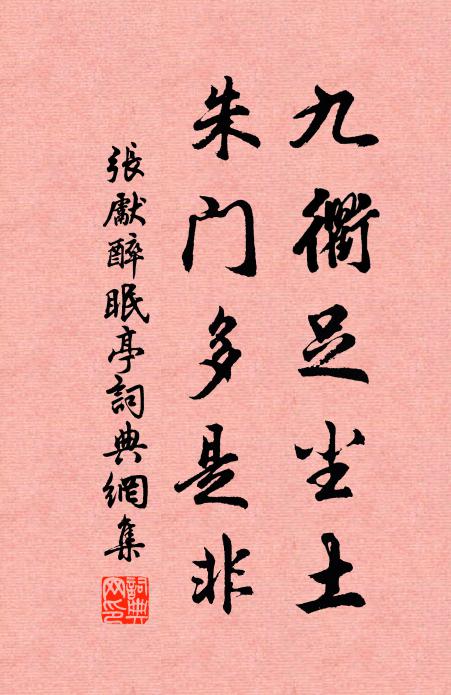 九衢足尘土
朱门多是非
張獻醉眠亭詞典網集
詞典网印